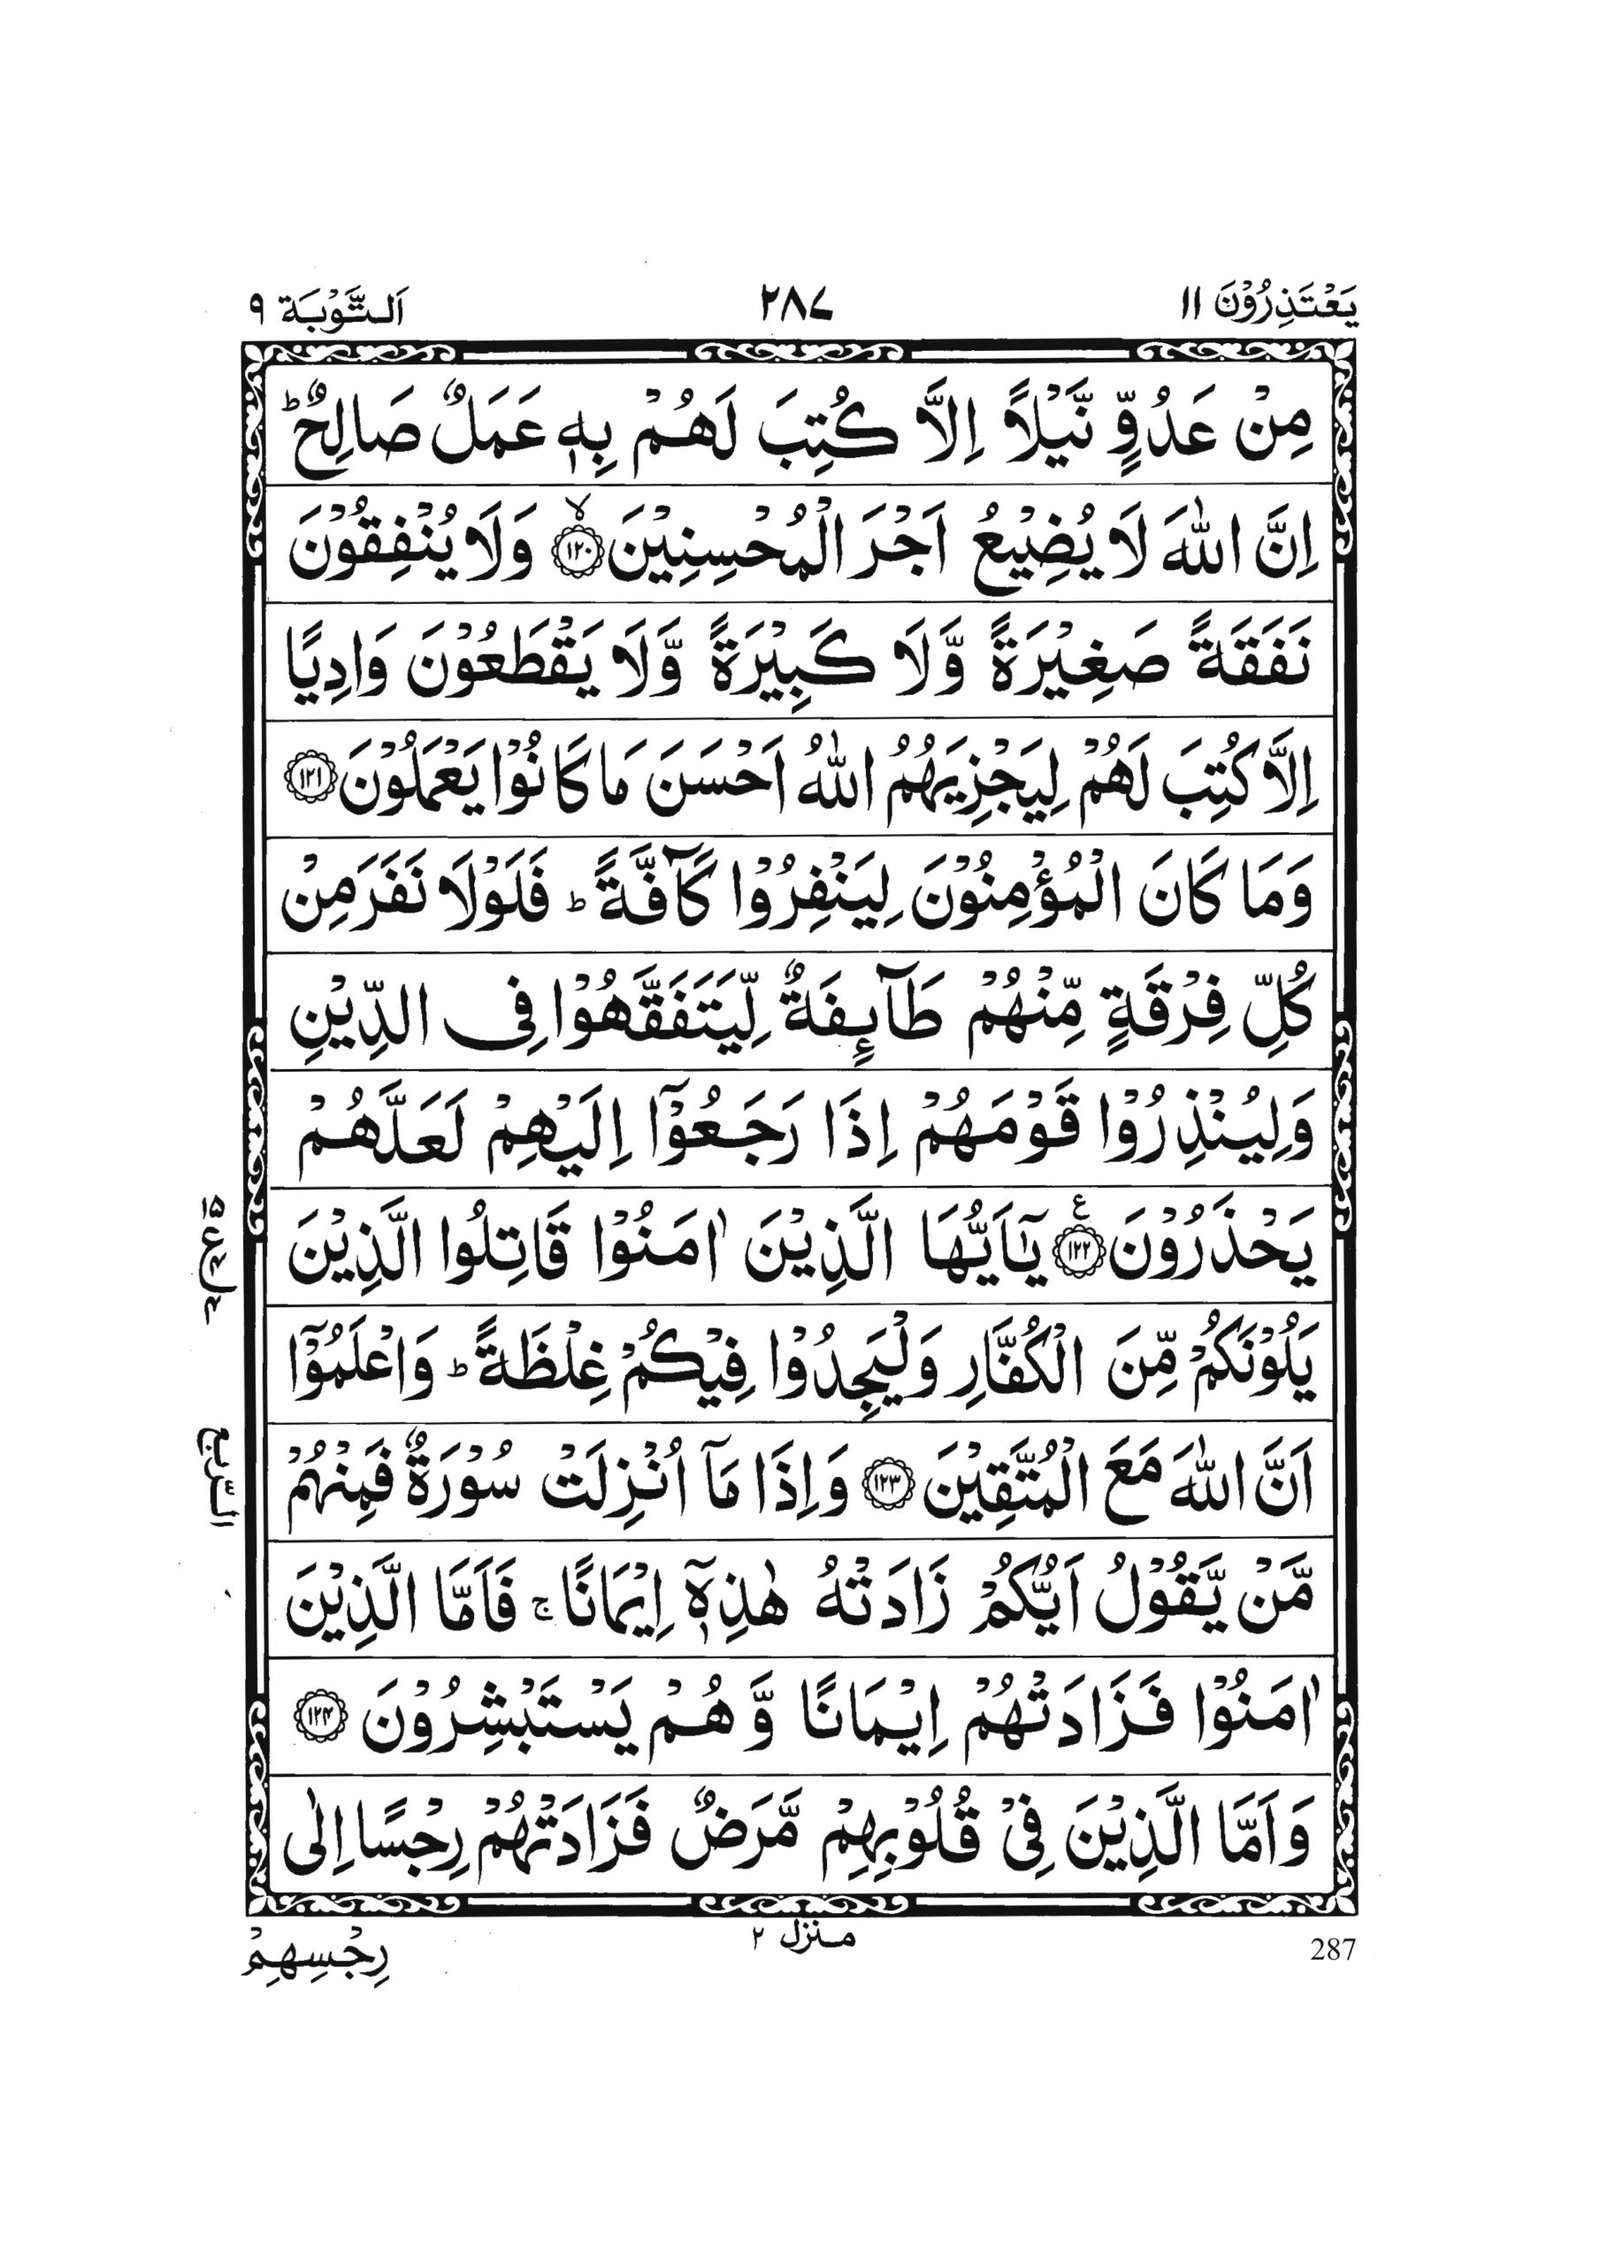 يَعْتَذِرُوْنَ ١١
٢٨٧
اَلتَّوْبَة ٩
مِنْ عَدُوٍّ نَّيْلًا اِلَّا كُتِبَ لَهُمْ بِهٖ عَمَلٌ صَالِحٌ ؕ
اِنَّ اللّٰهَ لَا يُضِيْعُ اَجْرَ الْمُحْسِنِيْنَ ۙ﴿١٢٠﴾ وَلَا يُنْفِقُوْنَ
نَفَقَةً صَغِيْرَةً وَّلَا كَبِيْرَةً وَّلَا يَقْطَعُوْنَ وَادِيًا
اِلَّا كُتِبَ لَهُمْ لِيَجْزِيَهُمُ اللّٰهُ اَحْسَنَ مَا كَانُوْا يَعْمَلُوْنَ ﴿١٢١﴾
وَمَا كَانَ الْمُؤْمِنُوْنَ لِيَنْفِرُوْا كَآفَّةً ؕ فَلَوْلَا نَفَرَ مِنْ
كُلِّ فِرْقَةٍ مِّنْهُمْ طَآئِفَةٌ لِّيَتَفَقَّهُوْا فِى الدِّيْنِ
وَلِيُنْذِرُوْا قَوْمَهُمْ اِذَا رَجَعُوْۤا اِلَيْهِمْ لَعَلَّهُمْ
يَحْذَرُوْنَ ﴿١٢٢﴾ ع يٰۤاَيُّهَا الَّذِيْنَ اٰمَنُوْا قَاتِلُوا الَّذِيْنَ
يَلُوْنَكُمْ مِّنَ الْكُفَّارِ وَلْيَجِدُوْا فِيْكُمْ غِلْظَةً ؕ وَاعْلَمُوْۤا
اَنَّ اللّٰهَ مَعَ الْمُتَّقِيْنَ ﴿١٢٣﴾ وَاِذَا مَاۤ اُنْزِلَتْ سُوْرَةٌ فَمِنْهُمْ
الرّبع
مَّنْ يَّقُوْلُ اَيُّكُمْ زَادَتْهُ هٰذِهٖۤ اِيْمَانًا ۚ فَاَمَّا الَّذِيْنَ
اٰمَنُوْا فَزَادَتْهُمْ اِيْمَانًا وَّهُمْ يَسْتَبْشِرُوْنَ ﴿١٢٤﴾
وَاَمَّا الَّذِيْنَ فِىْ قُلُوْبِهِمْ مَّرَضٌ فَزَادَتْهُمْ رِجْسًا اِلٰى
رِجْسِهِمْ
منزل ٢
287